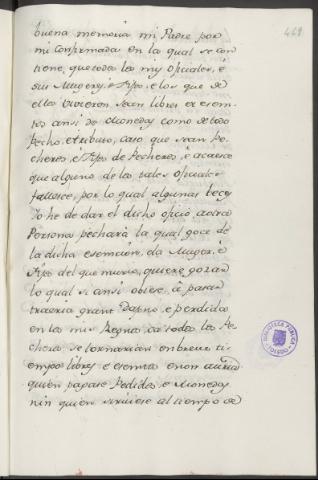 469
buena memoria mi Padre por
mi confirmada en la qual se con
tiene, que todos los mis oficiales, é
sus Mugeres, é Fijos, e los que de
ellos vivieren sean libres e esem-
tos ansi de Monedas como de todo
Pecho, e tributo, caso que sean Pe-
cheros, é Fijos de Pecheros, é acaesce
que alguno de los tales oficiales
fallesce, por lo qual algunas beces
Io he de dar el dicho oficio, a otra
Persona pechará la qual goce de
la dicha esemcion, é la Muger, é
Fijos del que murio, quiere gozar
lo qual si ansi obiese á pasar
traeria grant Dapño, e perdida
en los mis Regnos ca todos los Pe-
cheros se tornarian en breve ti-
empo libres e esentos e non abria
quien pagase Pedidos, e Monedas
nin quien serviese al tiempo de
BIBLIOTECA PUBLICA
TOLEDO